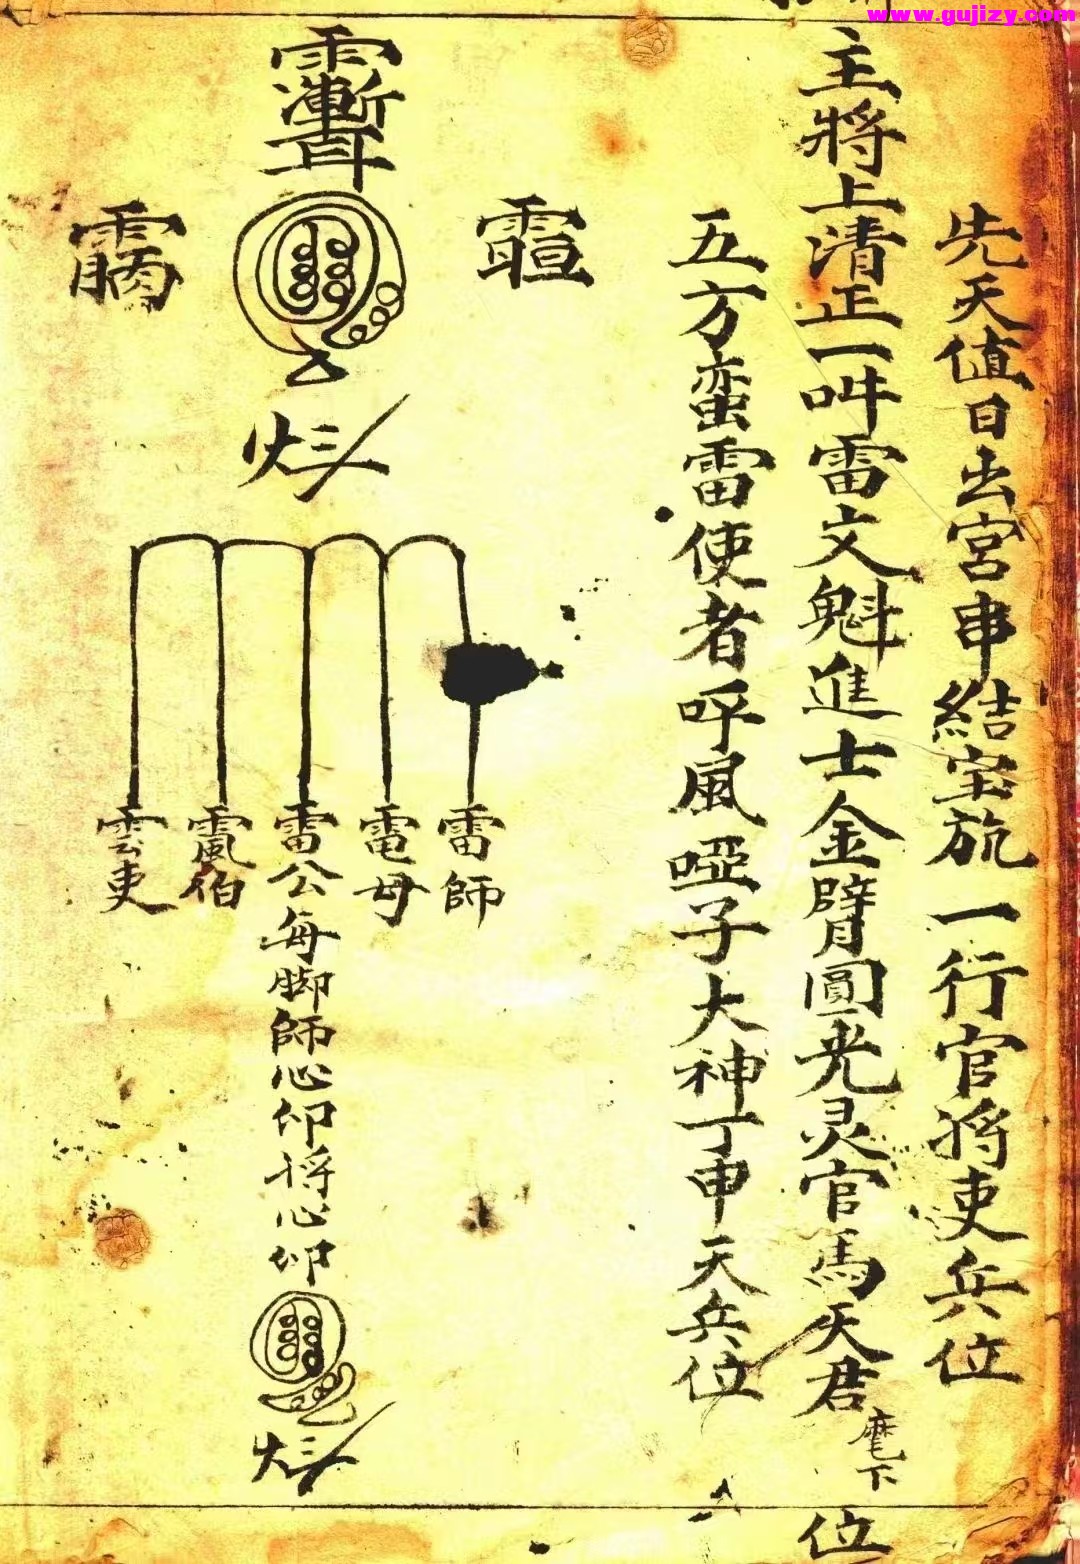 www.gujizy.com
先天值日出宮串結宝旂一行官将吏兵位
主將上清正一叫雷文魁進士金臂圓光灵官馬天君麾下位
五方蛮雷使者呼風啞子大神丁申天兵位
雷師
電母
雷公每脚師心仰将心仰
伯
雲吏